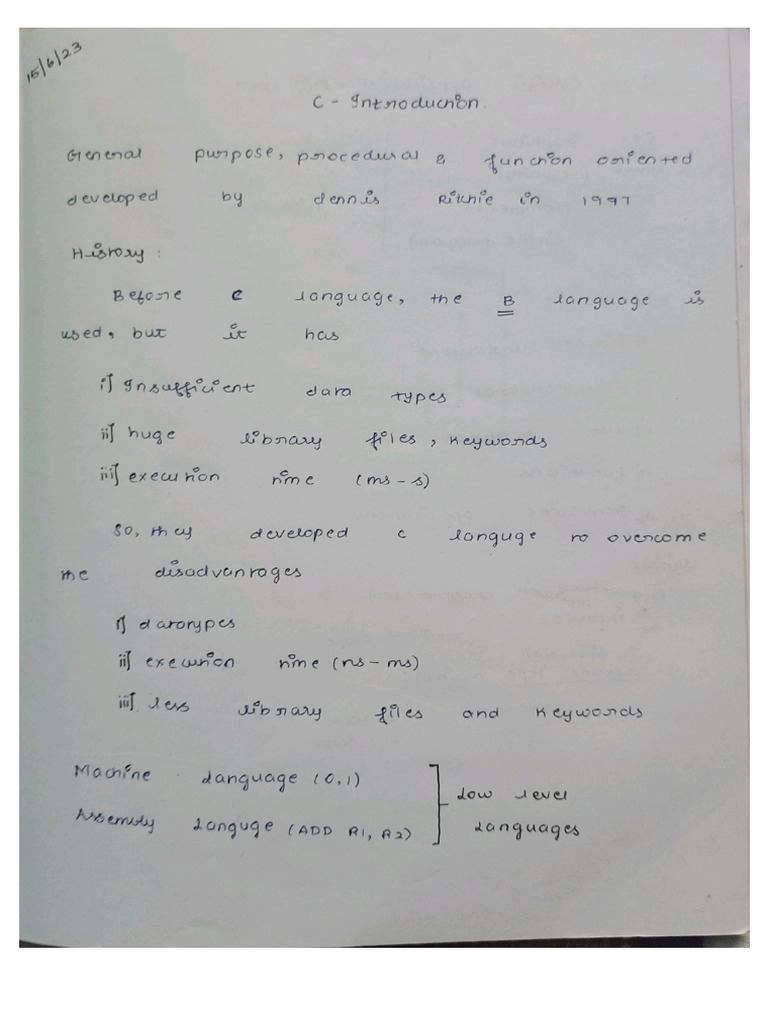 15/6/23
C - Introduction.
General purpose, procedural & function oriented
developed by dennis Ritchie in 1997
History :
Before C language, the B language is
used, but it has
i] Insufficient data types
ii] huge library files, keywords
iii] execution time (ms - s)
So, they developed c languge to overcome
the disadvantages
i] datatypes
ii] execution time (ns - ms)
iii] less library files and keywords
Machine Language (0,1)
Assembly Languge (ADD R1, R2)
Low level
Languages